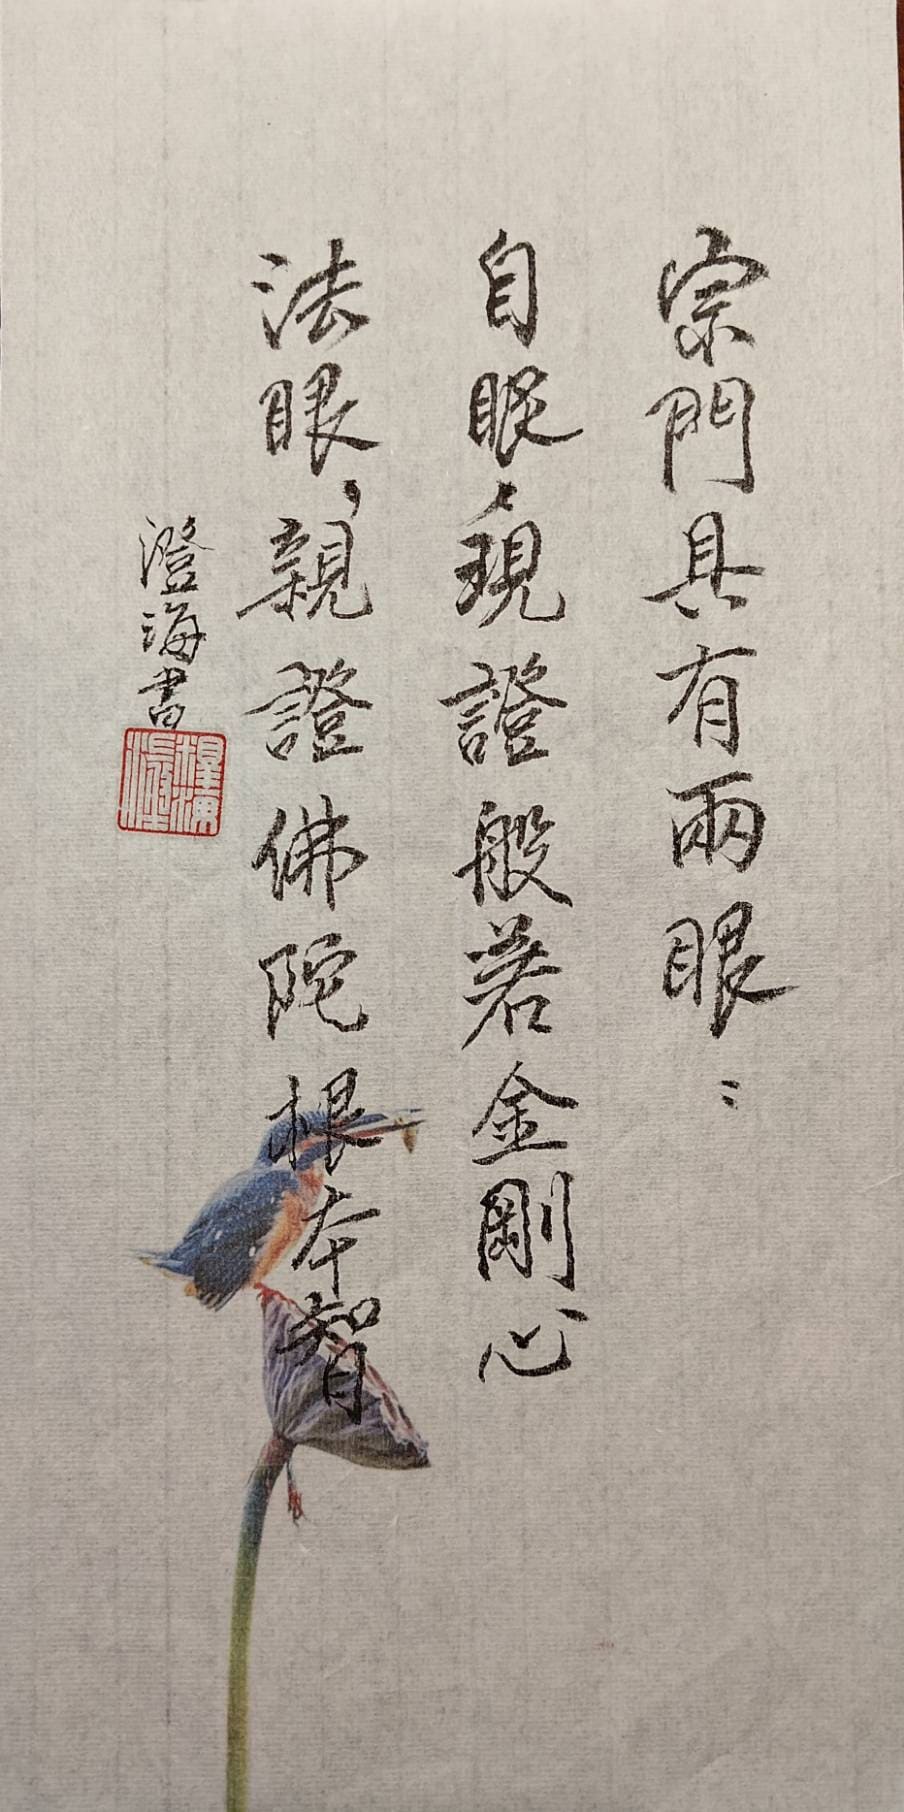 宗門具有兩眼：
自眼，現證般若金剛心
法眼，親證佛陀根本智
澄海書